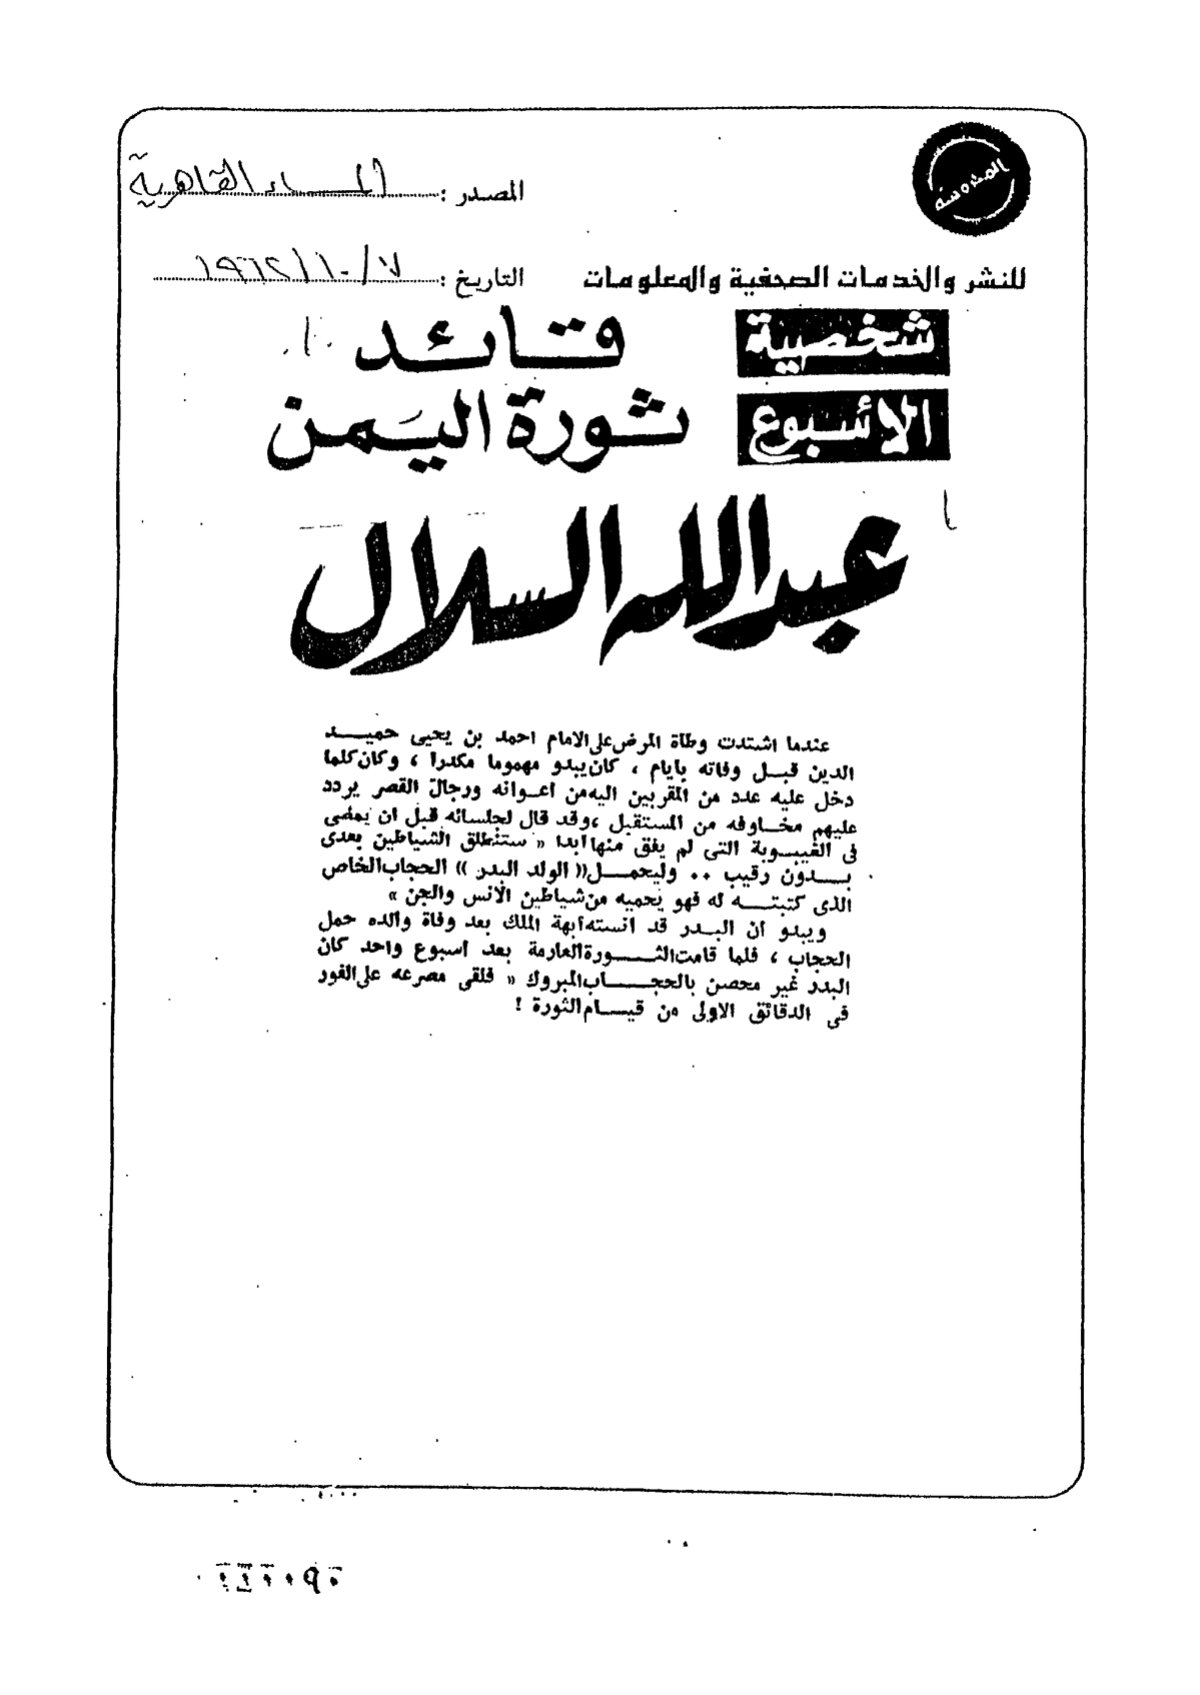 المحروسة
المصدر : المساء القاهرية
للنشر والخدمات الصحفية والمعلومات
التاريخ : ٧/١٠/١٩٦٢
شخصية
الأسبوع
قائد
ثورة اليمن
عبد الله السلال
عندما اشتدت وطاة المرض على الامام احمد بن يحيى حميد
الدين قبل وفاته بايام ، كان يبدو مهموما مكدرا ، وكان كلما
دخل عليه عدد من المقربين اليه من اعوانه ورجال القصر يردد
عليهم مخاوفه من المستقبل ، وقد قال لجلسائه قبل ان يمضى
فى الغيبوبة التى لم يفق منها ابدا « ستنطلق الشياطين بعدى
بدون رقيب .. وليحمل (( الولد البدر )) الحجاب الخاص
الذى كتبته له فهو يحميه من شياطين الانس والجن »
ويبدو ان البدر قد انسته ابهة الملك بعد وفاة والده حمل
الحجاب ، فلما قامت الثورة العارمة بعد اسبوع واحد كان
البدر غير محصن بالحجاب المبروك « فلقى مصرعه على الفور
فى الدقائق الاولى من قيام الثورة !